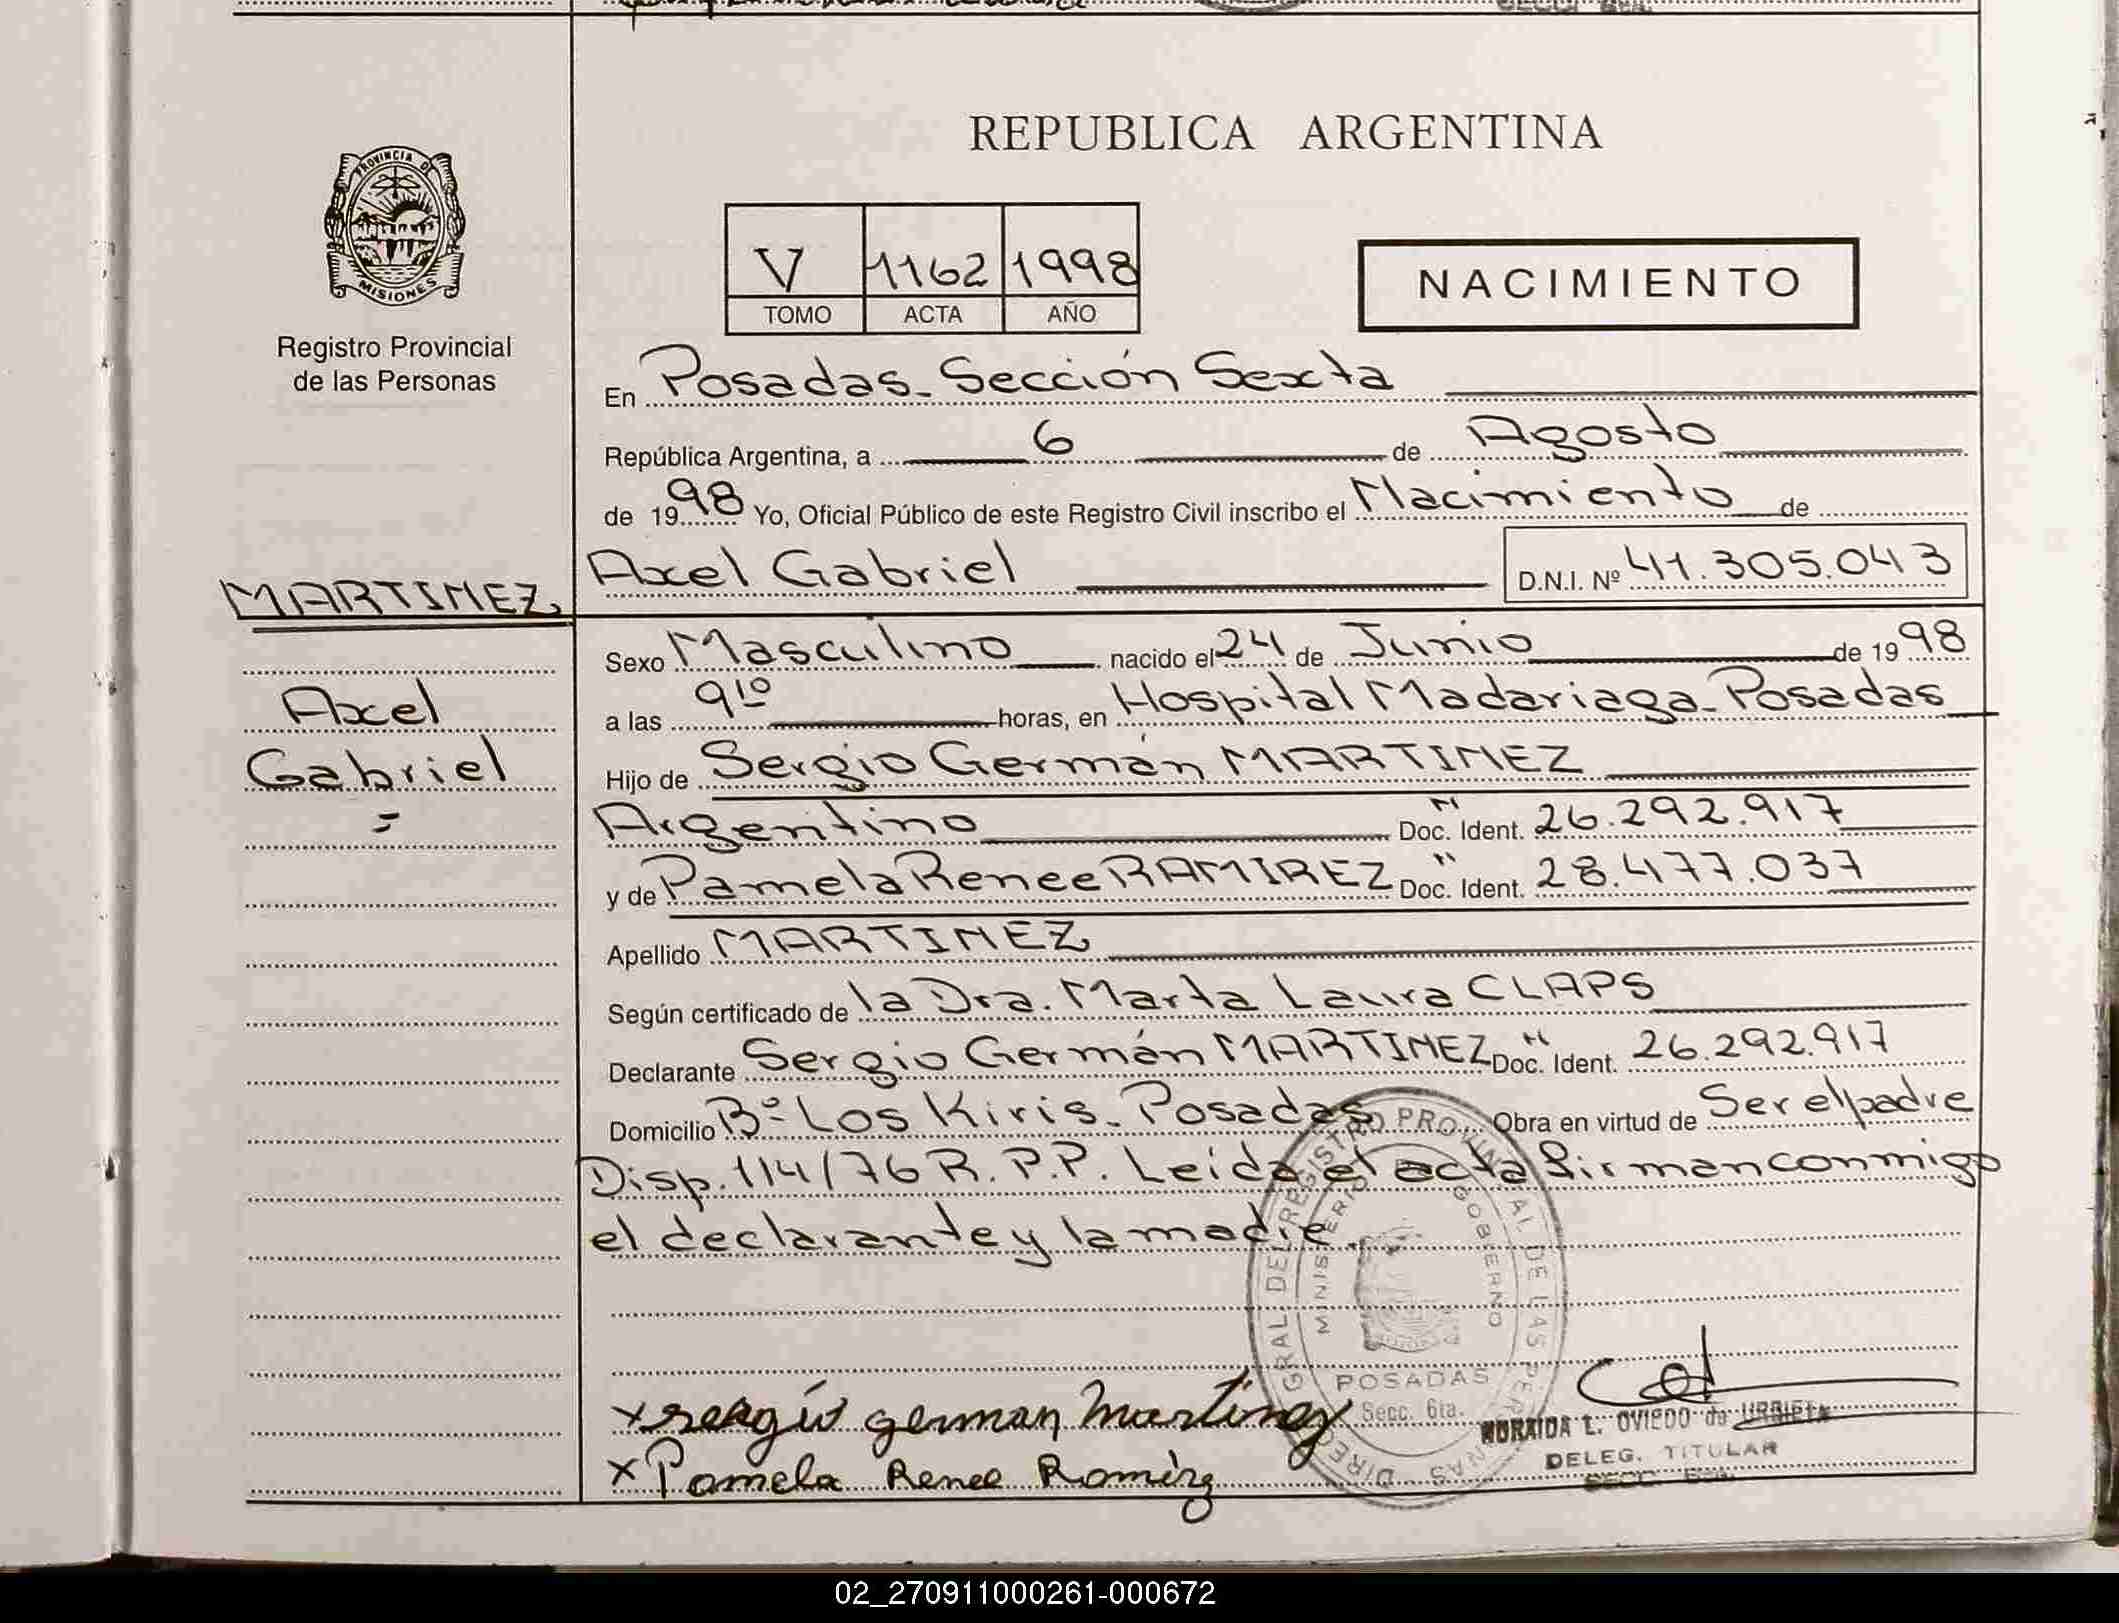 REPUBLICA ARGENTINA
PROVINCIA DE
MISIONES
Registro Provincial
de las Personas
V 1162 1998
TOMO ACTA AÑO
NACIMIENTO
En Posadas_ Sección Sexta
República Argentina, a 6 de Agosto
de 1998 Yo, Oficial Público de este Registro Civil inscribo el Nacimiento de
Axel Gabriel D.N.I. Nº 41.305.043
MARTINEZ
Axel
Gabriel
=
Sexo Masculino nacido el 24 de Junio de 1998
a las 9¹⁰ horas, en Hospital Madariaga_ Posadas
Hijo de Sergio Germán MARTINEZ
Argentino Doc. Ident. N 26.292.917
y de Pamela Renee RAMIREZ Doc. Ident. N 28.477.037
Apellido MARTINEZ
Según certificado de la Dra. Marta Laura CLAPS
Declarante Sergio Germán MARTINEZ Doc. Ident. N 26.292.917
Domicilio Bº Los Kiris_ Posadas Obra en virtud de Ser el padre
Disp. 114/76 R.P.P. Leida el acta firman conmigo
el declarante y la madre.
DIREC GRAL DEL REGISTRO PROVINCIAL DE LAS PERSONAS
MINISTERIO GOBIERNO
POSADAS
Secc. 6ta.
x sergio german Martinez
x Pamela Renee Ramirez
NORAIDA L. OVIEDO de URBIETA
DELEG. TITULAR
02_270911000261-000672